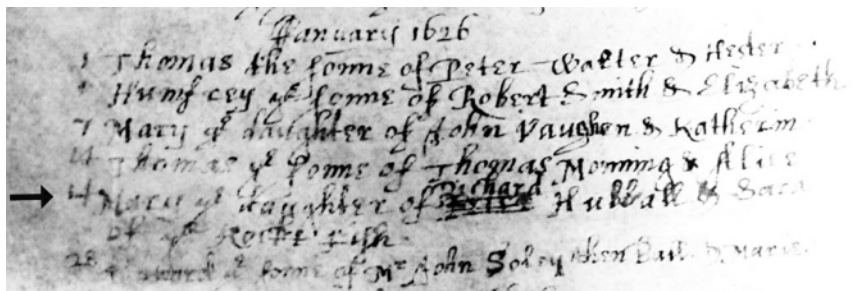 January 1626
1 Thomas the sonne of Peter Walter & Hester
1 Humfrey ye sonne of Robert Smith & Elizabeth
7 Mary ye daughter of John Vaughen & Katherin
14 Thomas ye sonne of Thomas Monning & Alice
14 Mary ye daughter of Richard Huball & Sara
of ye
28 ye sonne of Mr John Soley then Bail. & Marie